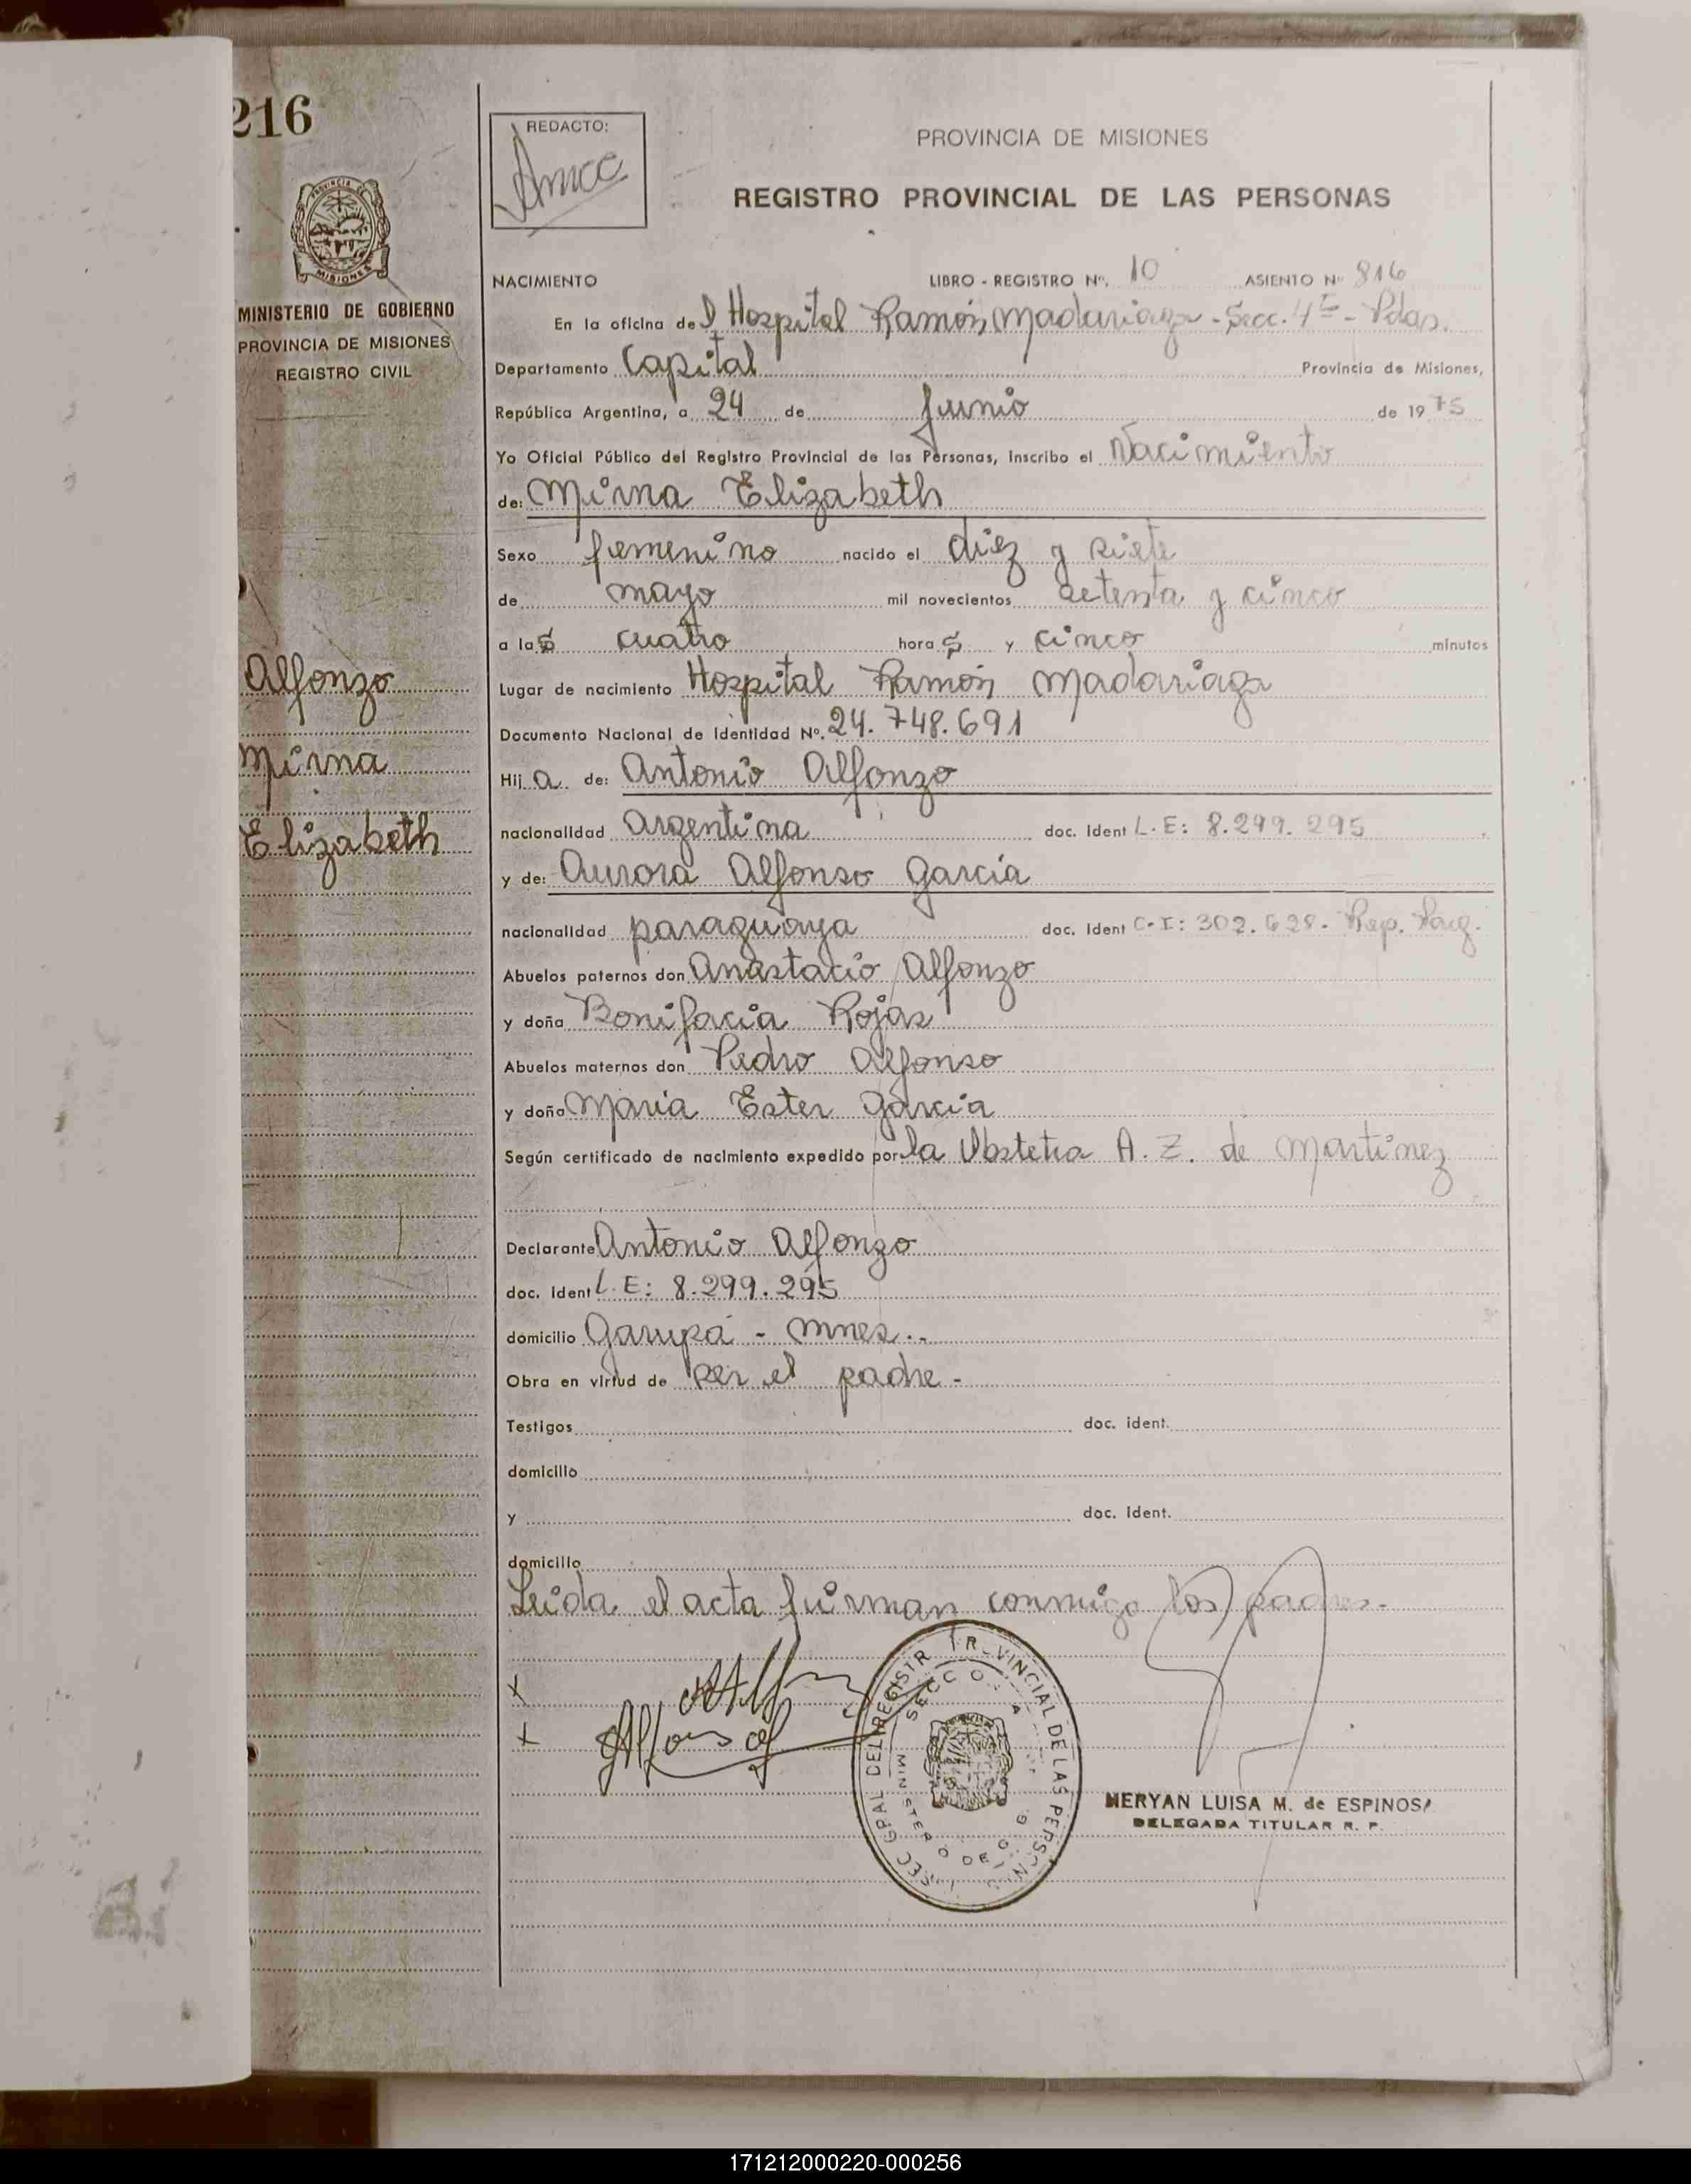 216
MINISTERIO DE GOBIERNO
PROVINCIA DE MISIONES
REGISTRO CIVIL
Alfonzo
Mirna
Elizabeth
REDACTO:
PROVINCIA DE MISIONES
REGISTRO PROVINCIAL DE LAS PERSONAS
NACIMIENTO LIBRO - REGISTRO Nº. 10 ASIENTO Nº 816
En la oficina del Hospital Ramón Madariaga - Secc. 4ª - Pdas.
Departamento Capital Provincia de Misiones,
República Argentina, a 24 de Junio de 1975
Yo Oficial Público del Registro Provincial de las Personas, inscribo el Nacimiento
de: Mirna Elizabeth
Sexo femenino nacido el diez y siete
de mayo mil novecientos setenta y cinco
a las cuatro horas y cinco minutos
Lugar de nacimiento Hospital Ramón Madariaga
Documento Nacional de Identidad Nº. 24.748.691
Hija de: Antonio Alfonzo
nacionalidad argentina doc. Ident L.E: 8.299.295
y de: Aurora Alfonso García
nacionalidad paraguaya doc. Ident C.I: 302.628. Rep. Parg.
Abuelos paternos don Anastacio Alfonzo
y doña Bonifacia Rojas
Abuelos maternos don Pedro Alfonso
y doña María Ester García
Según certificado de nacimiento expedido por la Obstetra A. Z. de Martínez
Declarante Antonio Alfonzo
doc. Ident L.E: 8.299.295
domicilio Garupá - Mnes..
Obra en virtud de ser el padre -
Testigos doc. ident.
domicilio
y doc. Ident.
domicilio
Leida el acta firman conmigo los padres.-
x
x
MERYAN LUISA M. de ESPINOSA
DELEGADA TITULAR R. P.
171212000220-000256